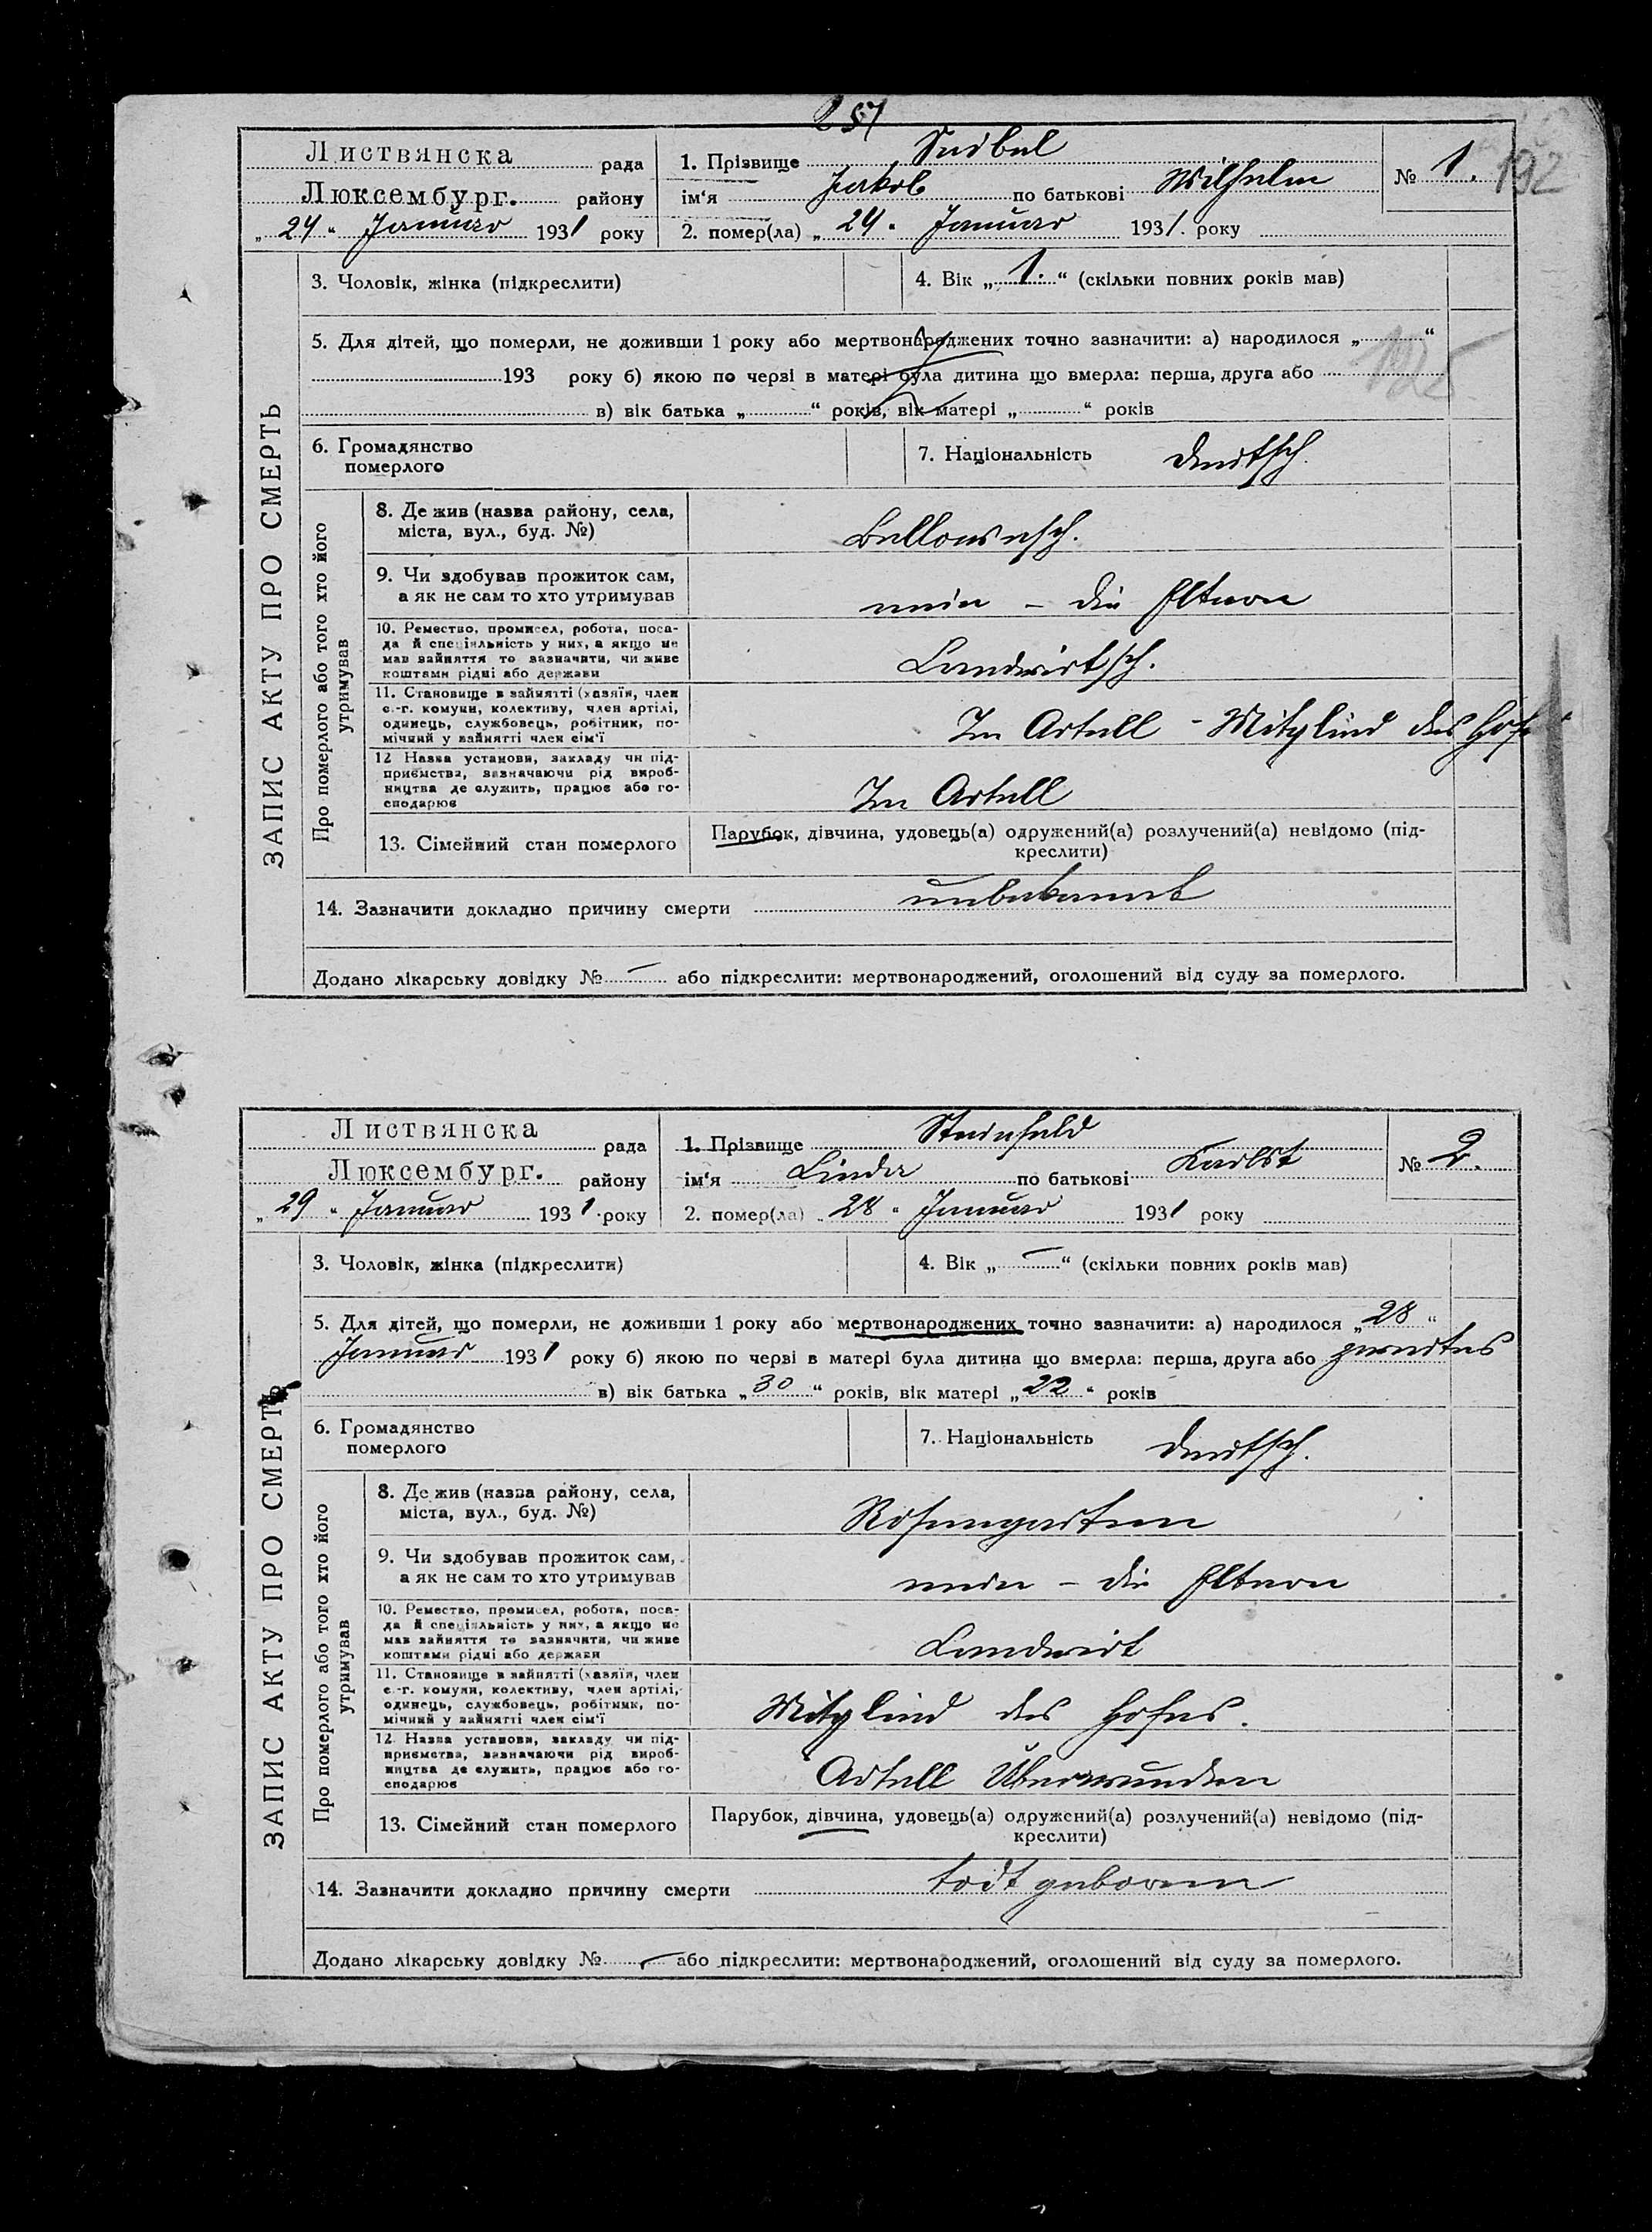 251
Листвянска рада
Люксембург. району
„24“ Januar 1931 року
1. Прізвище Seibel
ім‘я Jakob по батькові Wilhelm
2. помер(ла) „24“ Januar 1931. року
№ 1.
192
ЗАПИС АКТУ ПРО СМЕРТЬ
3. Чоловік, жінка (підкреслити)
4. Вік „1.“ (скільки повних років мав)
5. Для дітей, що померли, не доживши 1 року або мертвонароджених точно зазначити: а) народилося „ “
193 року б) якою по черзі в матері була дитина що вмерла: перша, друга або
в) вік батька „ “ років, вік матері „ “ років
6. Громадянство
померлого
7. Національність deutsch.
Про померлого або того хто його
утримував
8. Де жив (назва району, села,
міста, вул., буд. №)
9. Чи здобував прожиток сам,
а як не сам то хто утримував
nein – die Eltern
10. Ремество, промисел, робота, поса-
да й спеціяльність у них, а якщо не
мав зайняття то зазначити, чи живе
коштами рідні або держави
Landwirtsch.
11. Становище в зайнятті (хазяїн, член
с.-г. комуни, колективу, член артілі,
одинець, службовець, робітник, по-
мічний у зайнятті член сім'ї
Im Artell - Mitglied des Hofs
12 Назва установи, закладу чи під-
приємства, зазначаючи рід вироб-
ництва де служить, працює або го-
сподарює
Im Artell
13. Сімейний стан померлого
Парубок, дівчина, удовець(а) одружений(а) розлучений(а) невідомо (під-
креслити)
14. Зазначити докладно причину смерти unbekannt
Додано лікарську довідку № – або підкреслити: мертвонароджений, оголошений від суду за померлого.
Листвянска рада
Люксембург. району
„29“ Januar 1931 року
1. Прізвище Steinfeld
ім‘я Linda по батькові
2. помер(ла) „28“ Januar 1931 року
№ 2.
ЗАПИС АКТУ ПРО СМЕРТЬ
3. Чоловік, жінка (підкреслити)
4. Вік „–“ (скільки повних років мав)
5. Для дітей, що померли, не доживши 1 року або мертвонароджених точно зазначити: а) народилося „28“
Januar 1931 року б) якою по черзі в матері була дитина що вмерла: перша, друга або
в) вік батька „30“ років, вік матері „22“ років
6. Громадянство
померлого
7. Національність deutsch.
Про померлого або того хто його
утримував
8. Де жив (назва району, села,
міста, вул., буд. №)
Rosengarten
9. Чи здобував прожиток сам,
а як не сам то хто утримував
nein – die Eltern
10. Ремество, промисел, робота, поса-
да й спеціяльність у них, а якщо не
мав зайняття то зазначити, чи живе
коштами рідні або держави
Landwirt
11. Становище в зайнятті (хазяїн, член
с.-г. комуни, колективу, член артілі,
одинець, службовець, робітник, по-
мічний у зайнятті член сім'ї
Mitglied des Hofes.
12. Назва установи, закладу чи під-
приємства, зазначаючи рід вироб-
ництва де служить, працює або го-
сподарює
Artell Überwunden
13. Сімейний стан померлого
Парубок, дівчина, удовець(а) одружений(а) розлучений(а) невідомо (під-
креслити)
14. Зазначити докладно причину смерти todt geboren
Додано лікарську довідку № – або підкреслити: мертвонароджений, оголошений від суду за померлого.